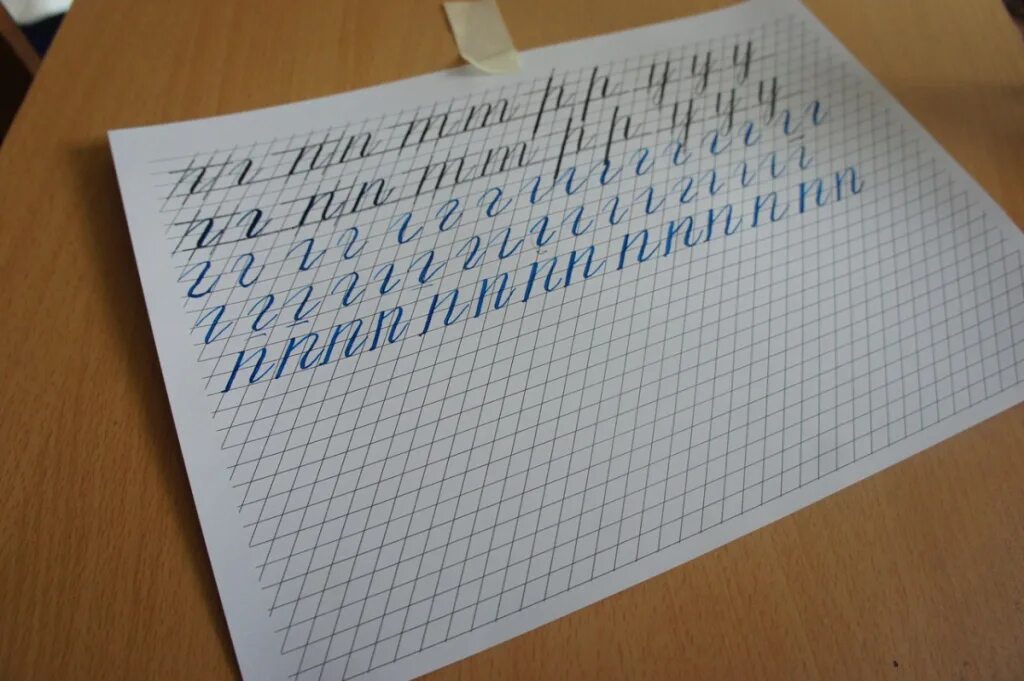 г г п п т т р р у у у
г г п п т т р р у у у
г г г г г г г г г г г г г г г г
г г г г г г г г г г г г г г г г г
п п п п п п п п п п п п п п